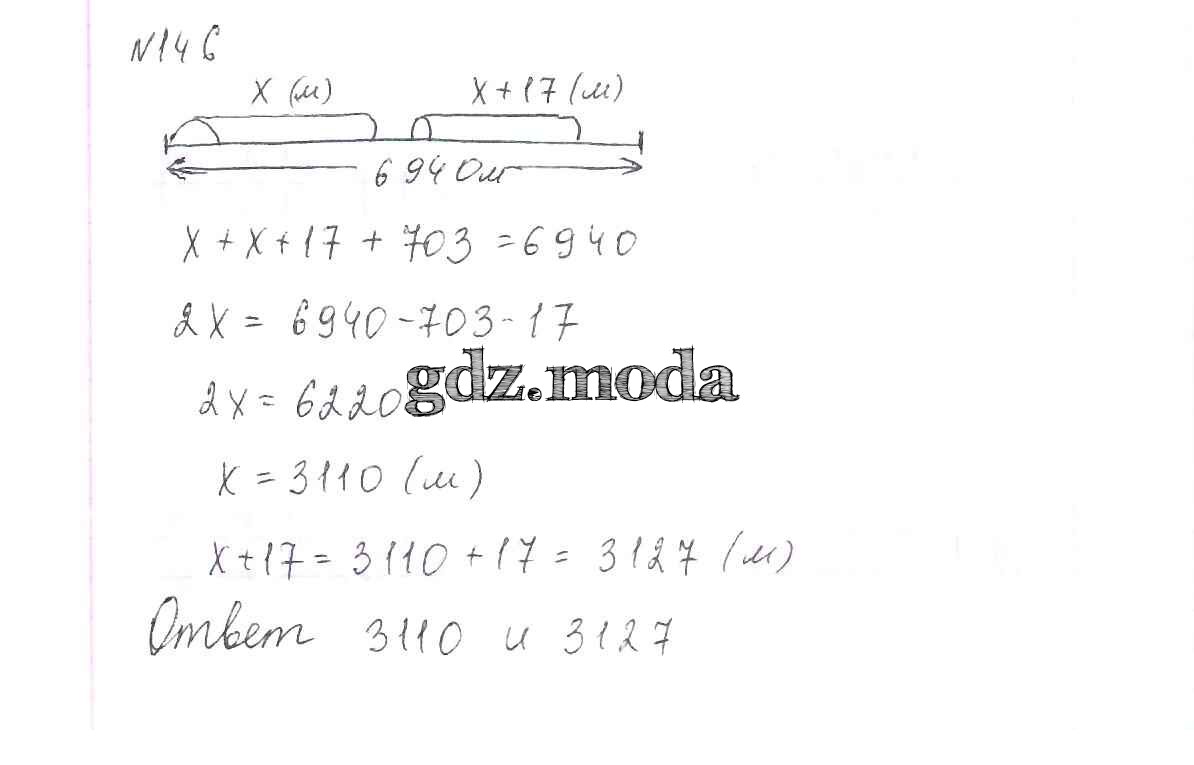 N146
x (м) x+17 (м)
6940м
x + x + 17 + 703 = 6940
2x = 6940 - 703 - 17
2x = 6220
gdz.moda
x = 3110 (м)
x + 17 = 3110 + 17 = 3127 (м)
Ответ 3110 и 3127